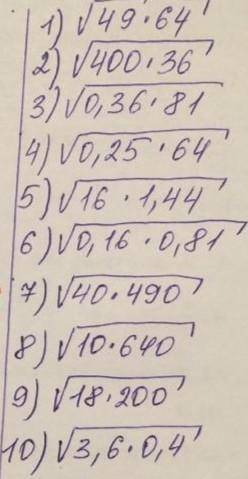 1) √49·64
2) √400·36
3) √0,36·81
4) √0,25·64
5) √16·1,44
6) √0,16·0,81
7) √40·490
8) √10·640
9) √18·200
10) √3,6·0,4